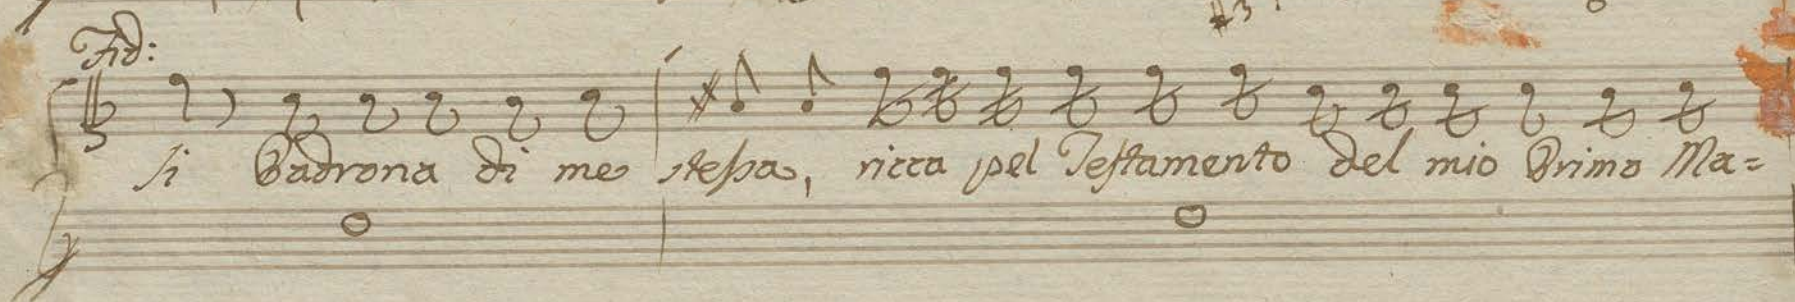 #3
Fid:
si Padrona di me stessa, ricca pel Testamento del mio Primo Ma=